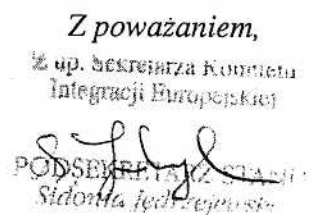 Z poważaniem,
Z up. Sekretarza Komitetu
Integracji Europejskiej
PODSEKRETARZ STANU
Sidonia Jędrzejewska